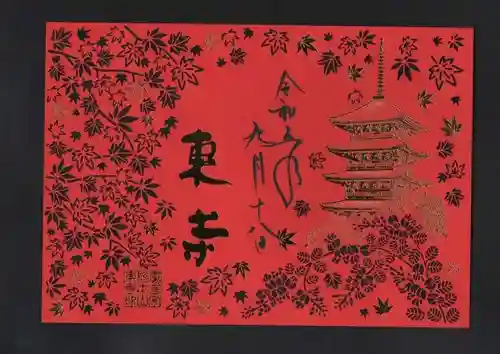 令和五年
九月十八日
東寺